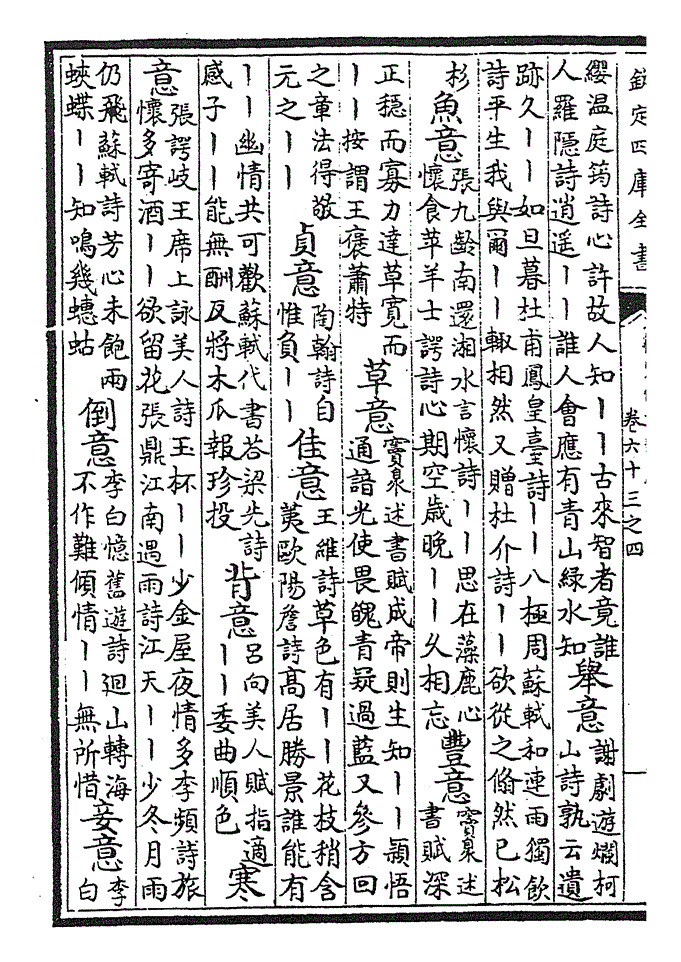 欽定四庫全書 卷六十三之四
纓温庭筠詩心許故人知丨丨古來智者竟誰人羅隱詩逍遥丨丨誰人會應有青山緑水知舉意謝劇遊爛柯山詩孰云遺
跡久丨丨如旦暮杜甫鳳皇臺詩丨丨八極周蘇軾和連雨獨飲詩平生我與爾丨丨輙相然又贈杜介詩丨丨欲從之翛然已松
杉魚意張九齡南還湘水言懷詩丨丨思在藻鹿心懷食苹羊士諤詩心期空歲晚丨丨久相忘豐意竇臮述書賦深
正穏而寡力達草寛而丨丨按謂王褒蕭特草意竇臮述書賦成帝則生知丨丨頴悟通諳光使畏魄青疑過藍又參方回
之章法得敬元之丨丨貞意陶翰詩自惟負丨丨佳意王維詩草色有丨丨花枝稍含荑歐陽詹詩髙居勝景誰能有
丨丨幽情共可歡蘇軾代書荅梁先詩感子丨丨能無酬反將木瓜報珍投背意吕向美人賦指適丨丨委曲順色寒
意張諤岐王席上詠美人詩玉杯丨丨少金屋夜情多李頻詩旅懷多寄酒丨丨欲留花張鼎江南遇雨詩江天丨丨少冬月雨
仍飛蘇軾詩芳心未飽兩蛺蝶丨丨知鳴幾蟪蛄倒意李白憶舊遊詩迴山轉海不作難傾情丨丨無所惜妾意李白